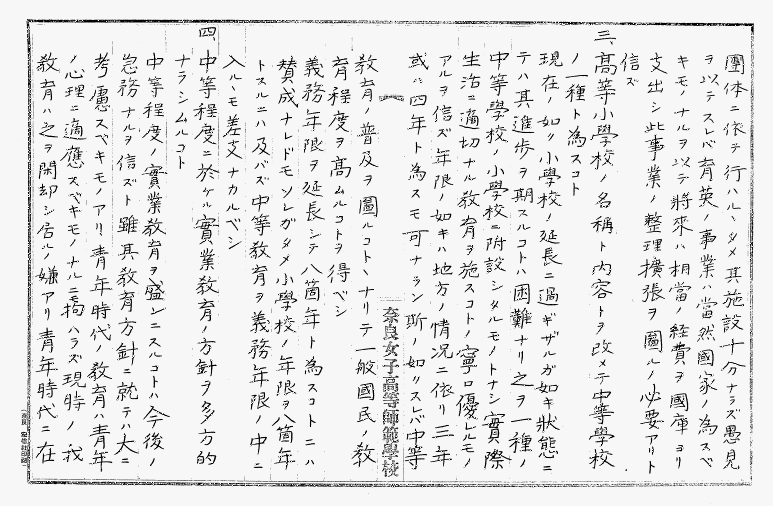 團体ニ依テ行ハルヽタメ其施設十分ナラズ愚見
ヲ以テスレバ育英ノ事業ハ當然國家ノ為スベ
キモノナルヲ以テ將來ハ相當ノ経費ヲ國庫ヨリ
支出シ此事業ノ整理擴張ヲ圖ルノ必要アリト
信ズ
三、高等小學校ノ名稱ト内容トヲ改メテ中等學校
ノ一種ト為スコト
現在ノ如ク小學校ノ延長ニ過ギザルガ如キ狀態ニ
テハ其進歩ヲ期スルコトハ困難ナリ之ヲ一種ノ
中等學校ノ小學校ニ附設シタルモノトナシ實際
生活ニ適切ナル教育ヲ施スコトノ寧ロ優レルモノ
アルヲ信ズ年限ノ如キハ地方ノ情況ニ依リ三年
或ハ四年ト為スモ可ナラン斯ノ如クスレバ中等
奈良女子高等師範學校
教育ノ普及ヲ圖ルコトヽナリテ一般國民ノ教
育程度ヲ高ムルコトヲ得ベシ
義務年限ヲ延長シテ八箇年ト為スコトニハ
賛成ナレドモソレガタメ小學校ノ年限ヲ八箇年
トスルニハ及バズ中等教育ヲ義務年限ノ中ニ
入ルヽモ差支ナカルベシ
四、中等程度ニ於ケル實業教育ノ方針ヲ多方的
ナラシムルコト
中等程度ノ實業教育ヲ盛ンニスルコトハ今後ノ
急務ナルヲ信ズト雖其教育方針ニ就テハ大ニ
考慮スベキモノアリ青年時代ノ教育ハ青年
ノ心理ニ適應スベキモノナルニモ拘ハラズ現時ノ我
教育ハ之ヲ閑却シ居ルノ嫌アリ青年時代ニ在